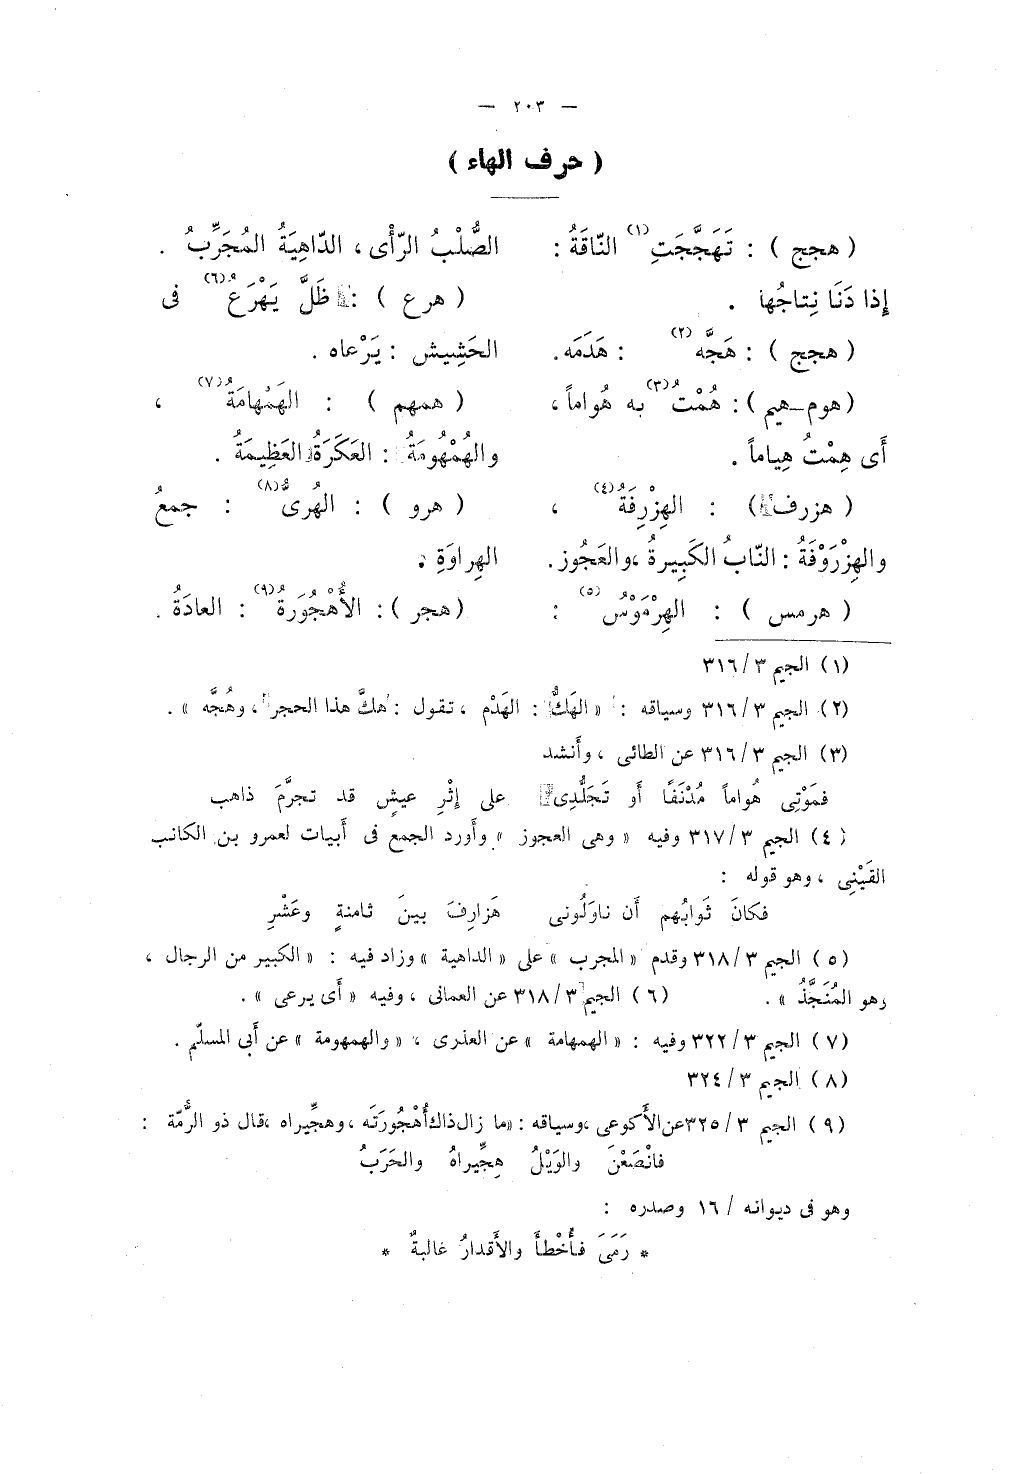 — ٢٠٣ —
( حرف الهاء )
( هجج ) : تَهَجَّجَتِ(١) النّاقَةُ :
إِذا دَنَا نِتاجُها .
( هجج ) : هَجَّه(٢) : هَدَمَه.
(هوم–هيم) : هُمْتُ(٣) به هُواماً،
أَى هِمْتُ هِياماً .
( هزرف) : الهِزْرِفَةُ(٤) ،
والهِزْرَوْفَةُ : النّابُ الكَبِيرةُ ،والعَجُوز.
( هرمس ) : الهِرْمَوْسُ(٥) :
الصُّلْبُ الرّأْى، الدّاهِيَةُ المُجَرِّبُ .
( هرع ) : ظَلَّ يَهْرَعُ(٦) فى
الحَشِيش : يَرْعاه .
( همهم ) : الهَمْهامَةُ(٧) ،
والهُمْهُومَةُ : العَكَرَةُ العَظِيمَةُ .
( هرو ) : الهُرِىُّ(٨) : جمعُ
الهِراوَةِ .
(هجر ) : الأُهْجُورَةُ(٩) : العادَةُ .
(١) الجيم ٣ / ٣١٦
(٢) الجيم ٣ / ٣١٦ وسياقه : « الهَكُّ : الهَدْم ، تقول : هكَّ هذا الحجر ، وهُجَّه » .
(٣) الجيم ٣ / ٣١٦ عن الطائى ، وأَنشد
فمَوْتِى هُواماً مُدْنَفًا أَو تَجَلُّدِى على إِثْرِ عيشٍ قد تجرَّمَ ذاهب
(٤) الجيم ٣ / ٣١٧ وفيه « وهى العجوز » وأَورد الجمع فى أَبيات لعمرو بن الكاتب
القَيْنِى ، وهو قوله :
فكانَ ثَوابُهم أَن ناوَلُونى هَزارِفَ بينَ ثامنةٍ وعَشْرِ
(٥) الجيم ٣ / ٣١٨ وقدم « المجرب » على « الداهية » وزاد فيه : « الكبير من الرجال ،
وهو المُنَجَّذُ » . (٦) الجيم ٣ / ٣١٨ عن العمانى ، وفيه « أَى يرعى » .
(٧) الجيم ٣ / ٣٢٢ وفيه : « الهمهامة » عن العذرى ، « والهمهومة » عن أَبى المسلّم .
(٨) الجيم ٣ / ٣٢٤
(٩) الجيم ٣ / ٣٢٥ عن الأَكوعى ،وسياقه : «ما زال ذاك أُهْجُورَتَه ، وهجِّيراه ،قال ذو الرُّمّة :
فانْصَعْنَ والوَيْلُ هِجِّيراهُ والحَرَبُ
وهو فى ديوانه / ١٦ وصدره :
* رَمَىَ فأَخْطأَ والأَقدارُ غالبةٌ *